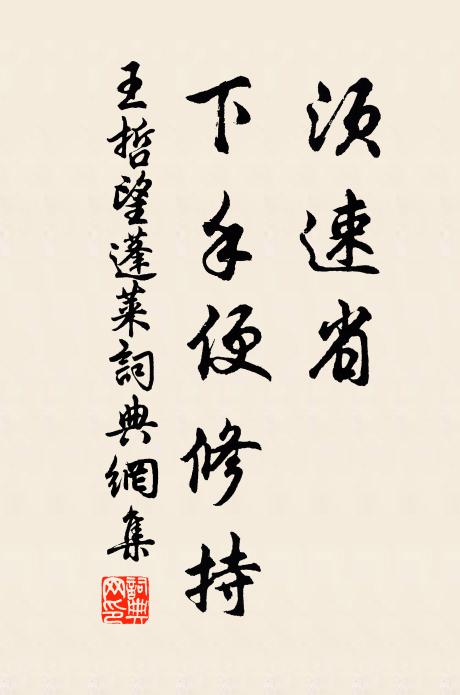 須速省
下手便修持
王哲望蓬萊詞典網集
詞典
网印